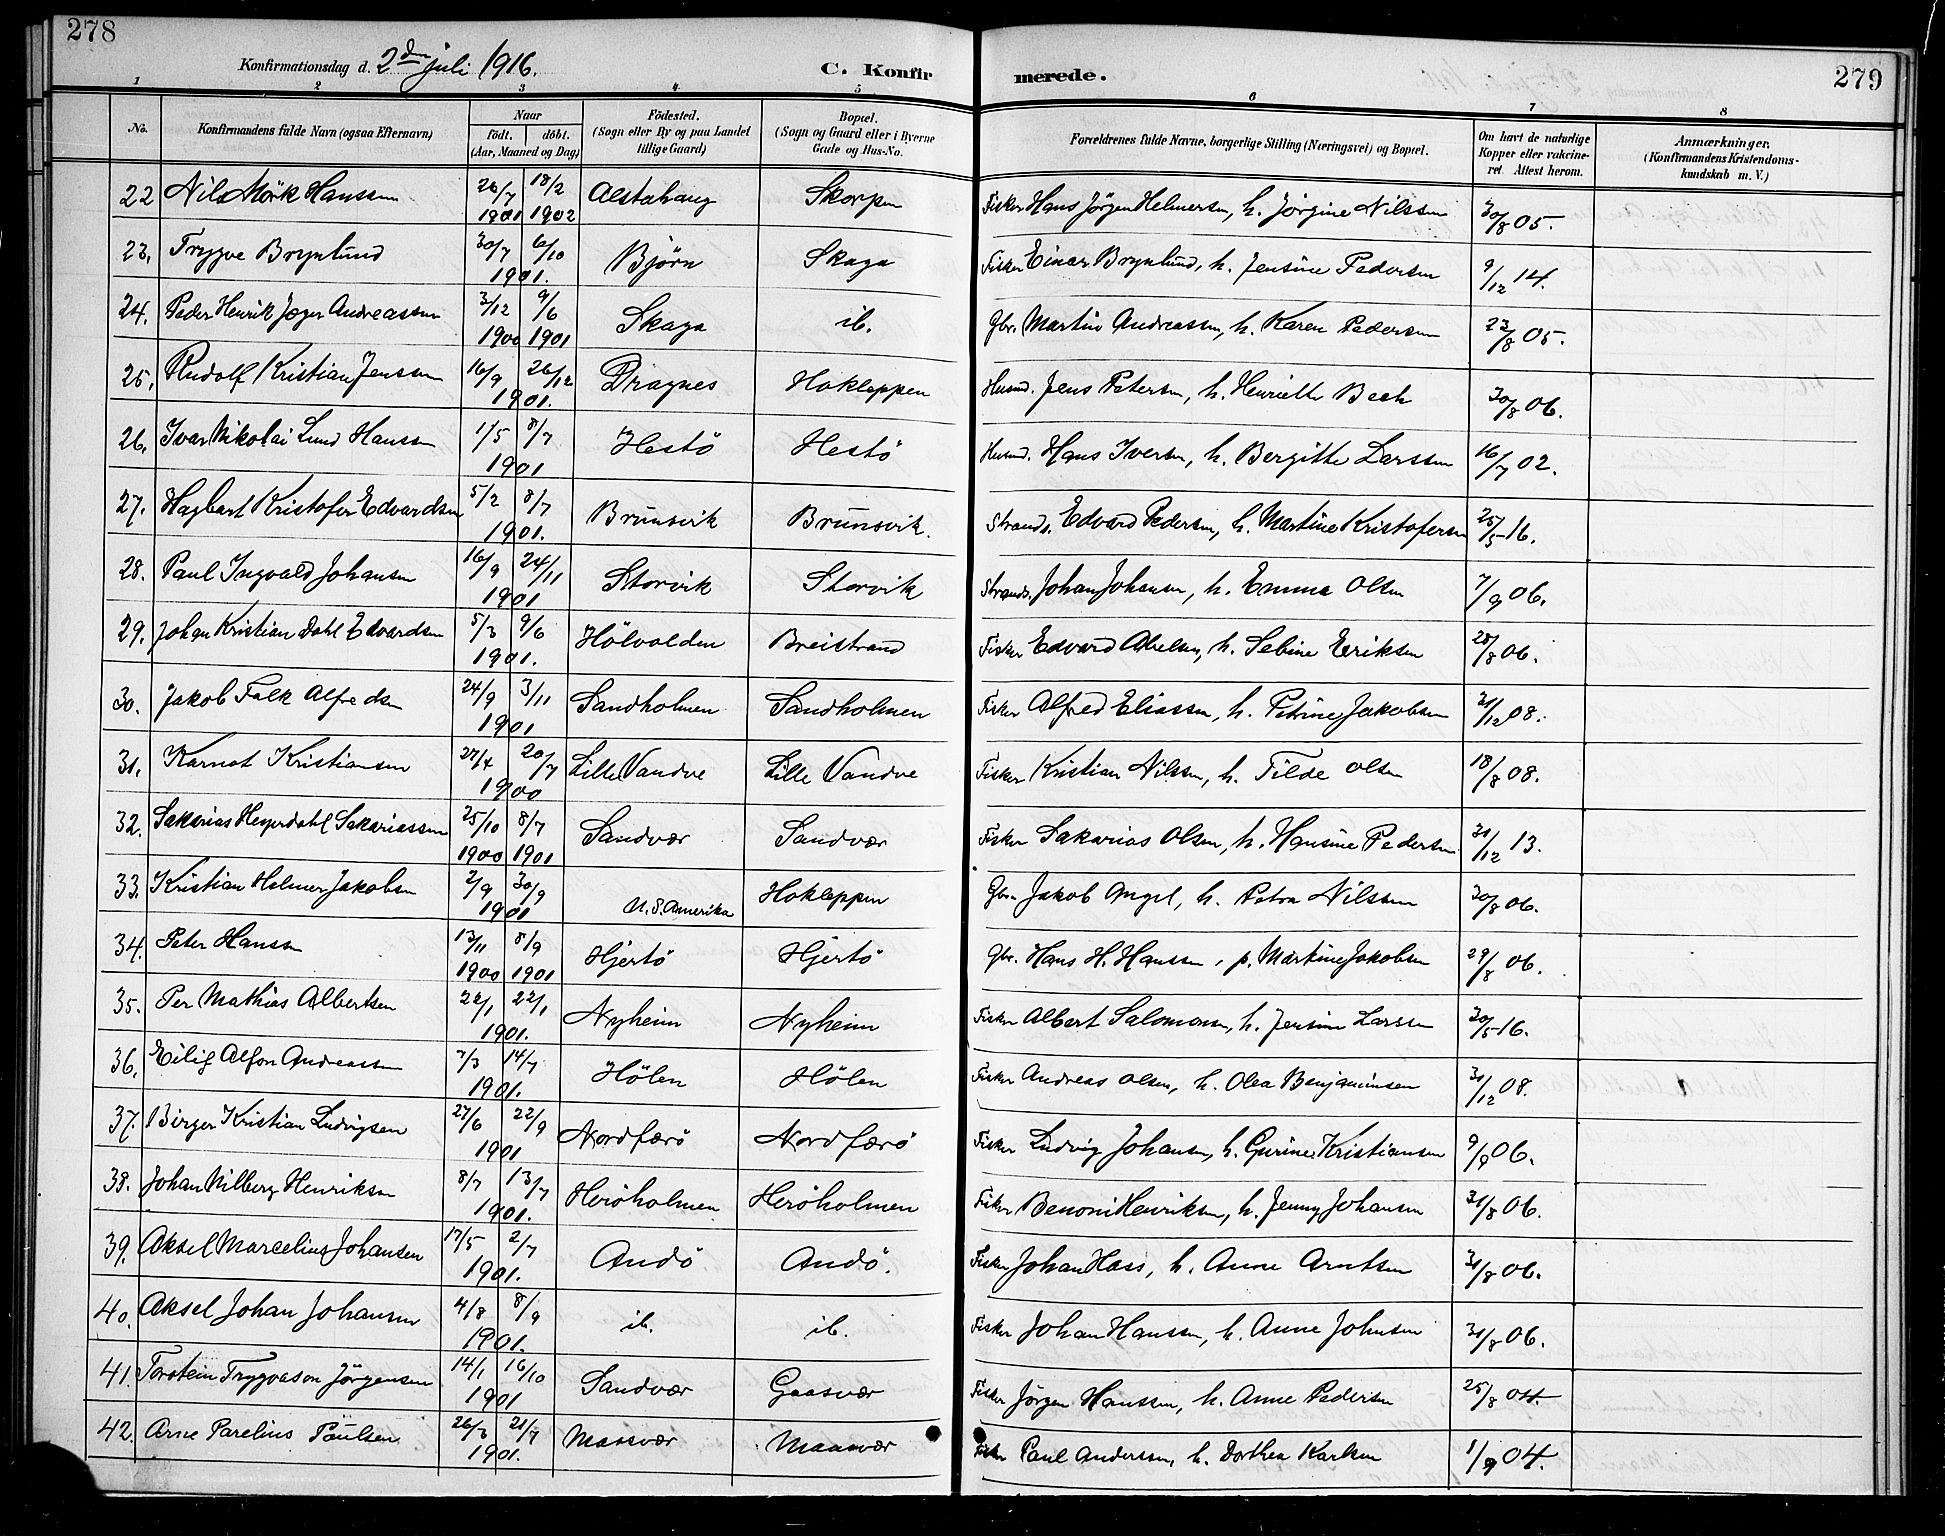 278
Konfirmationsdag d. 2den juli 1916.
C. Konfirmerede.
279
1 2 3 4 5 6 7 8
No.
Konfirmandens fulde Navn (ogsaa Efternavn)
Naar
født. døbt.
(Aar, Maaned og Dag)
Fødested.
(Sogn eller By og paa Landet
tillige Gaard)
Bopæl.
(Sogn og Gaard eller i Byerne
Gade og Hus-No.
Forældrenes fulde Navne, borgerlige Stilling (Næringsvei) og Bopæl.
Om havt de naturlige
Kopper eller vakcine-
ret. Attest herom.
Anmærkninger.
(Konfirmandens Kristendoms-
kundskab m. V.)
22 Nils Mörk Hanssen 26/7 1901 18/2 1902 Alstahaug Skorpen Fisker Hans Jörgen Helmersen, h. Jörgine Nilssen 30/8 05.
23. Trygve Brynlund 30/7 6/10 1901. Björn Skaga Fisker Einar Brynlund, h. Jensine Pedersen 9/12 14.
24. Peder Henrik Jæger Andreassen 3/12 1900 9/6 1901 Skaga ib. Gbr. Martin Andreassen, h. Karen Pedersen 23/8 05.
25. Rudolf Kristian Jenssen 16/9 26/12 1901. Dragnes Hokleppen Husmd. Jens Petersen, h. Henriette Bech 30/8 06.
26. Ivar Nikolai Lund Hanssen 1/5 8/7 1901 Hestö Hestö Husmd. Hans Iversen, h. Bergitte Larssen 16/7 02.
27. Hagbart Kristofer Edvardsen 5/2 8/7 1901. Brunsvik Brunsvik. Strands. Edvard Pedersen, h. Martine Kristofersen 25/5 16.
28. Paul Ingvald Johansen 16/9 24/11 1901 Storvik Storvik Strands. Johan Johansen, h. Emma Olsen 7/9 06.
29. Johan Kristian Dahl Edvardsen 5/3 9/6 1901. Hölvalden Breistrand Fisker Edvard Abelsen, h. Sebine Eriksen 28/8 06.
30. Jakob Falk Alfredsen 24/9 3/11 1901 Sandholmen Sandholmen Fisker Alfred Eliassen, h. Petrine Jakobsen 31/12 08.
31. Karnot Kristiansen 27/4 20/7 1900 Lille Vandve Lille Vandve Fisker Kristian Nilssen, h. Tilde Olsen 18/8 08.
32. Sakarias Heyerdahl Sakariassen 25/10 1900 8/7 1901 Sandvær Sandvær Fisker Sakarias Olsen, h. Hansine Pedersen 31/12 13.
33. Kristian Helmer Jakobsen 2/9 30/9 1901 U. S. Amerika Hokleppen Gbr. Jakob Angel, h. Petra Nilssen 30/8 06.
34. Peter Hanssen 13/11 1900 8/9 1901 Hjertö Hjertö Gbr. Hans H. Hanssen, p. Martine Jakobsen 29/8 06.
35. Per Mathias Albertsen 22/1 22/1 1901. Nyheim Nyheim Fisker Albert Salomonsen, h. Jensine Larssen 30/5 16.
36. Eilif Alfon Andreassen 7/3 14/7 1901. Hölen Hölen Fisker Andreas Olsen, h. Olea Benjaminsen 31/12 08.
37. Birger Kristian Ludvigsen 27/6 22/9 1901 Nordfærö Nordfærö Fisker Ludvig Johansen, h. Gurine Kristiansen 9/9 06.
38. Johan Wilberg Henriksen 8/7 13/7 1901. Heröholmen Heröholmen Fisker Benoni Henriksen, h. Jenny Johansen 31/8 06.
39. Aksel Marcelius Johansen 17/5 2/7 1901. Andö Andö. Fisker Johan Hass, h. Anne Arntsen 31/8 06.
40. Aksel Johan Johansen 4/8 8/9 1901. ib. ib. Fisker Johan Hanssen, h. Anne Johnsen 31/8 06.
41. Torstein Trygvason Jörgensen 14/1 16/10 1901 Sandvær Gaasvær Fisker Jörgen Hanssen, h. Anne Pedersen 25/8 04.
42. Arne Parelius Paulsen 26/3 21/7 1901. Maasvær Maasvær Fisker Paul Anderssen, h. Dorthea Karlsen 1/9 04.